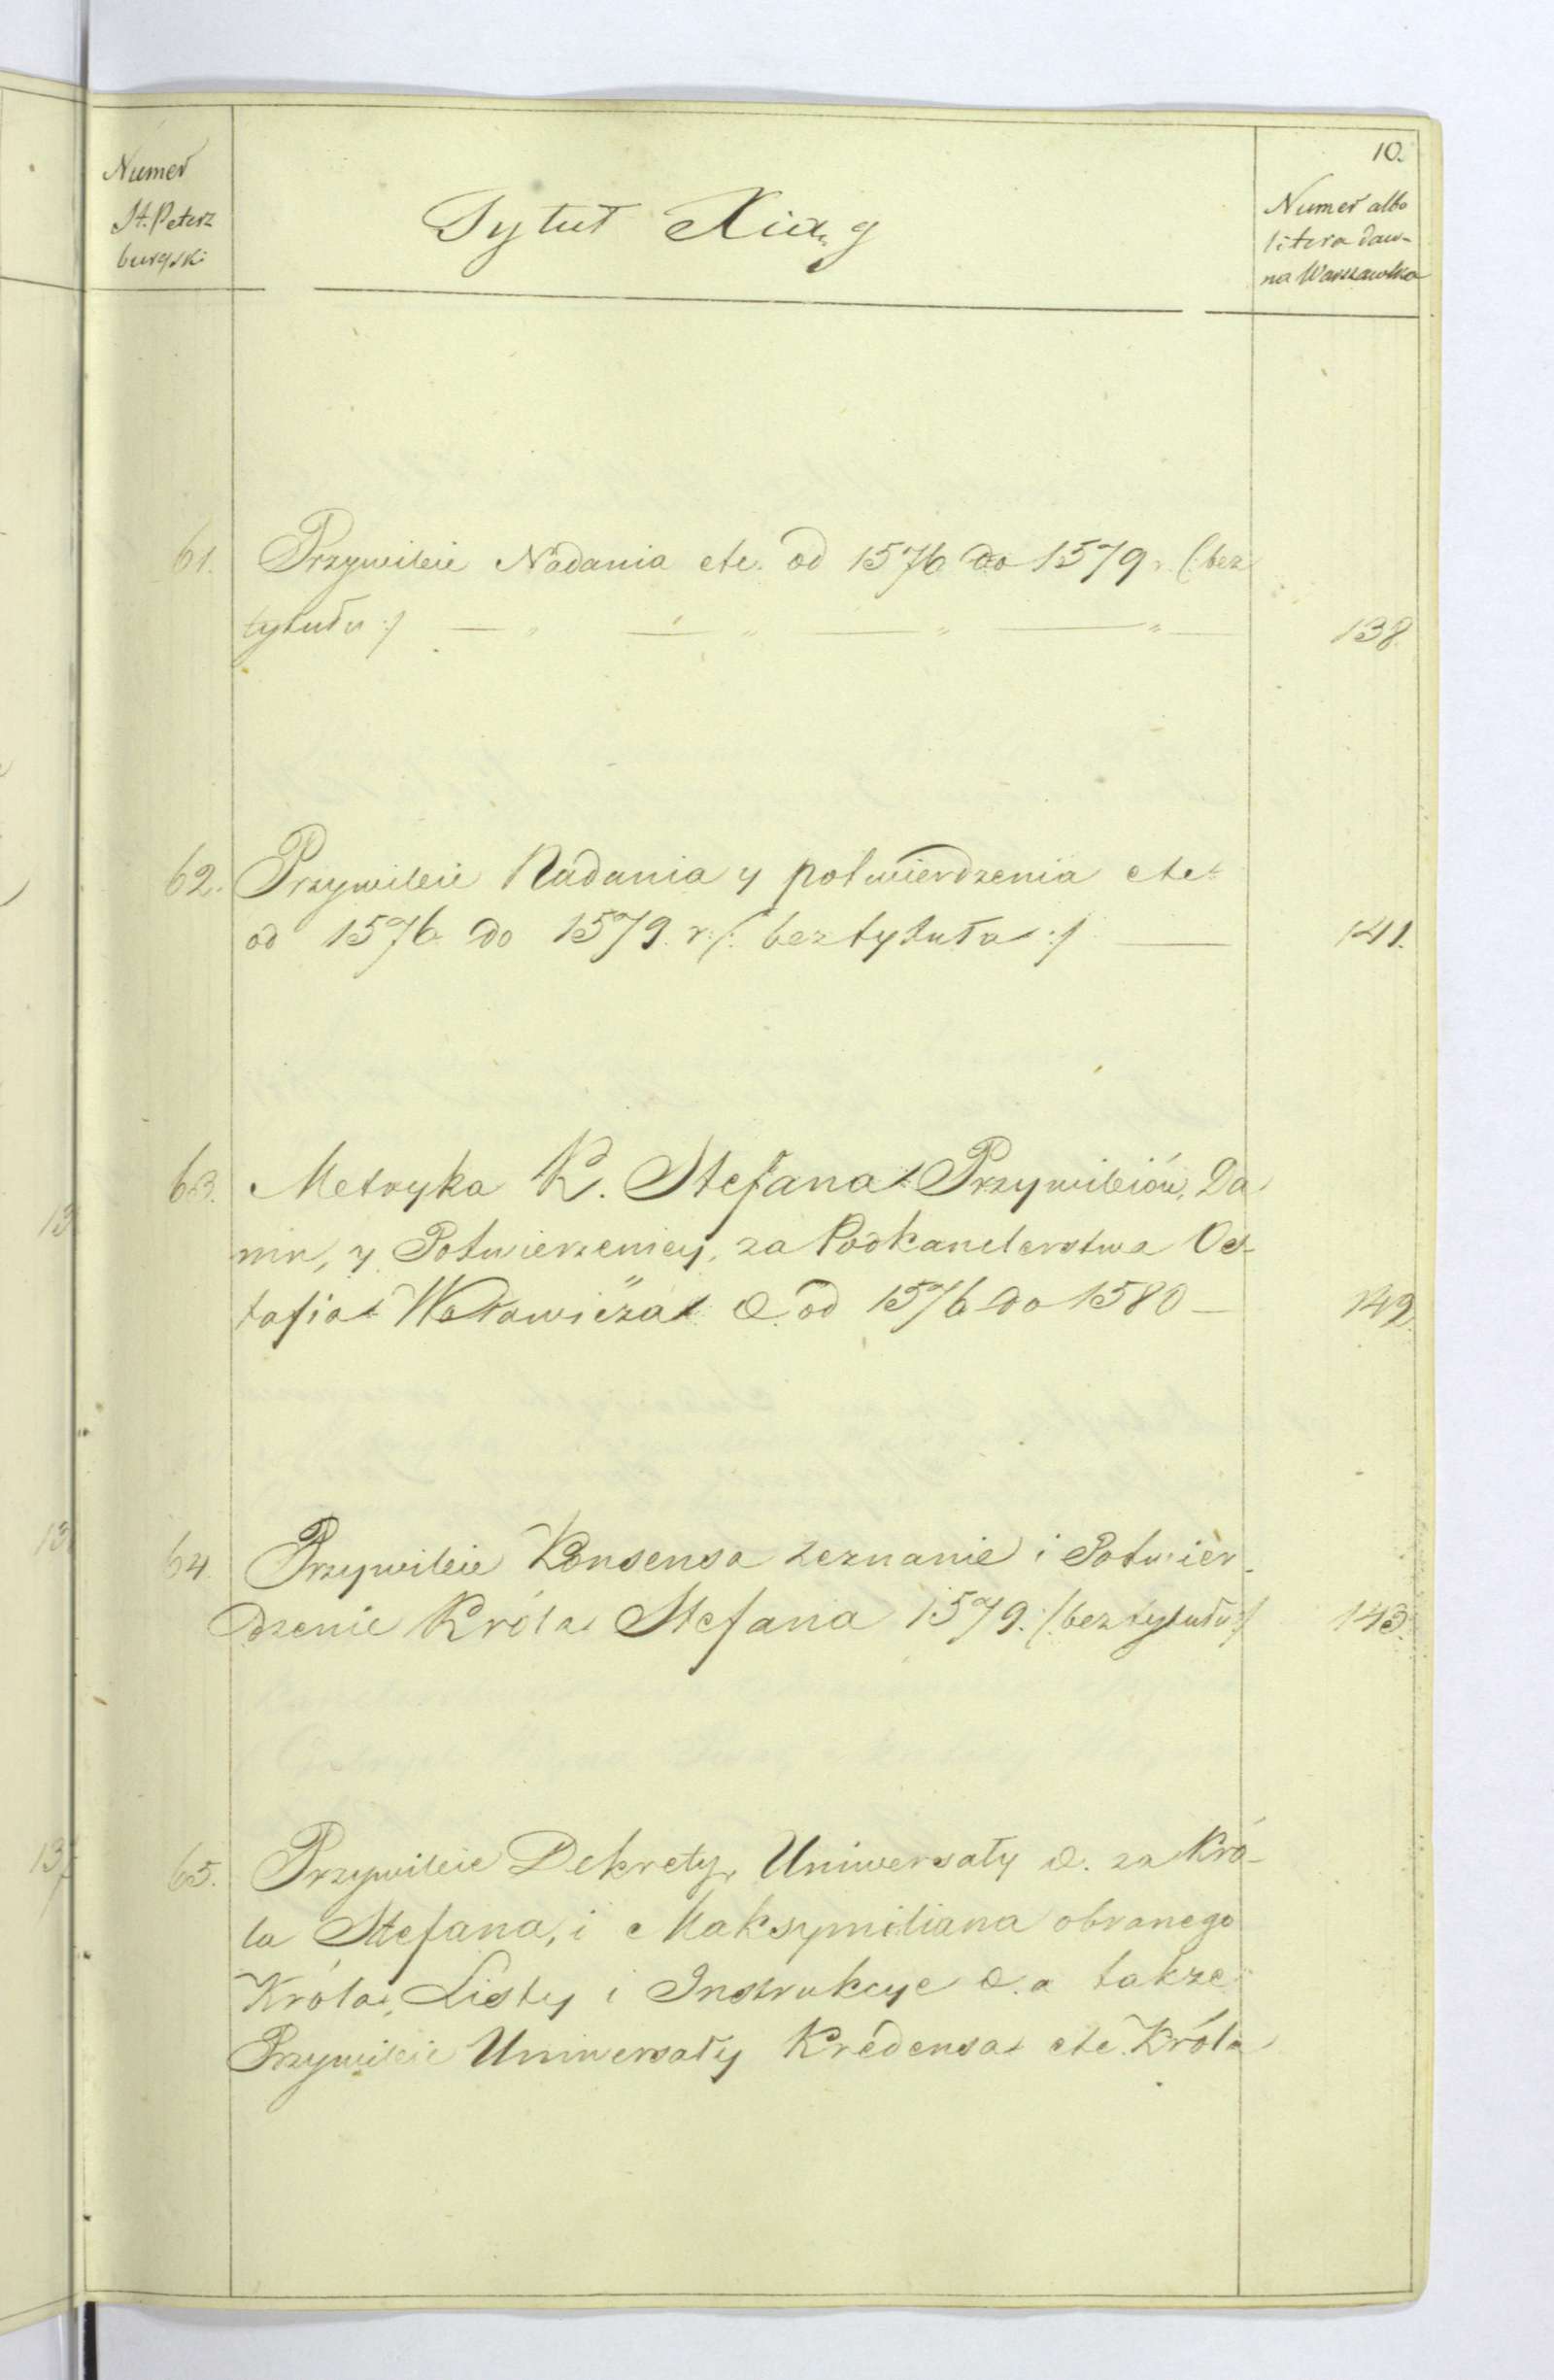 10.
Numer
St. Peterz
burgski
Tytuł Xiąg
Numer albo
litera daw-
na Warszawska
61. Przywileie Nadania etc. od 1576 do 1579 r. (: bez
tytułu :) — " — " — " — " — 138
62. Przywileie Nadania y potwierdzenia etc.
od 1576 do 1579. r. (: bez tytułu :) — 141.
63. Metryka K. Stefana Przywileiów, Da
nin, y Potwierzeniey, za Podkanclerstwa Os-
tafia Wołowicza &. od 1576 do 1580 — 142.
64 Przywileie Konsensa zeznanie i Potwier-
dzenie Króla Stefana 1579. (: bez tytułu :) 143.
65. Przywileie Dekrety, Uniwersały &. za Kró-
la Stefana, i Maksymiliana obranego
Króla, Listy i Instrukcye &. a także
Przywileie Uniwersały Kredensa etc. Króla